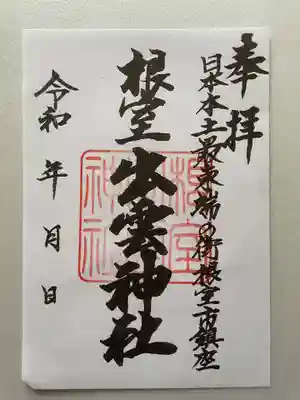 奉拝
日本本土最東端の街根室市鎮座
根室出雲神社
令和 年 月 日